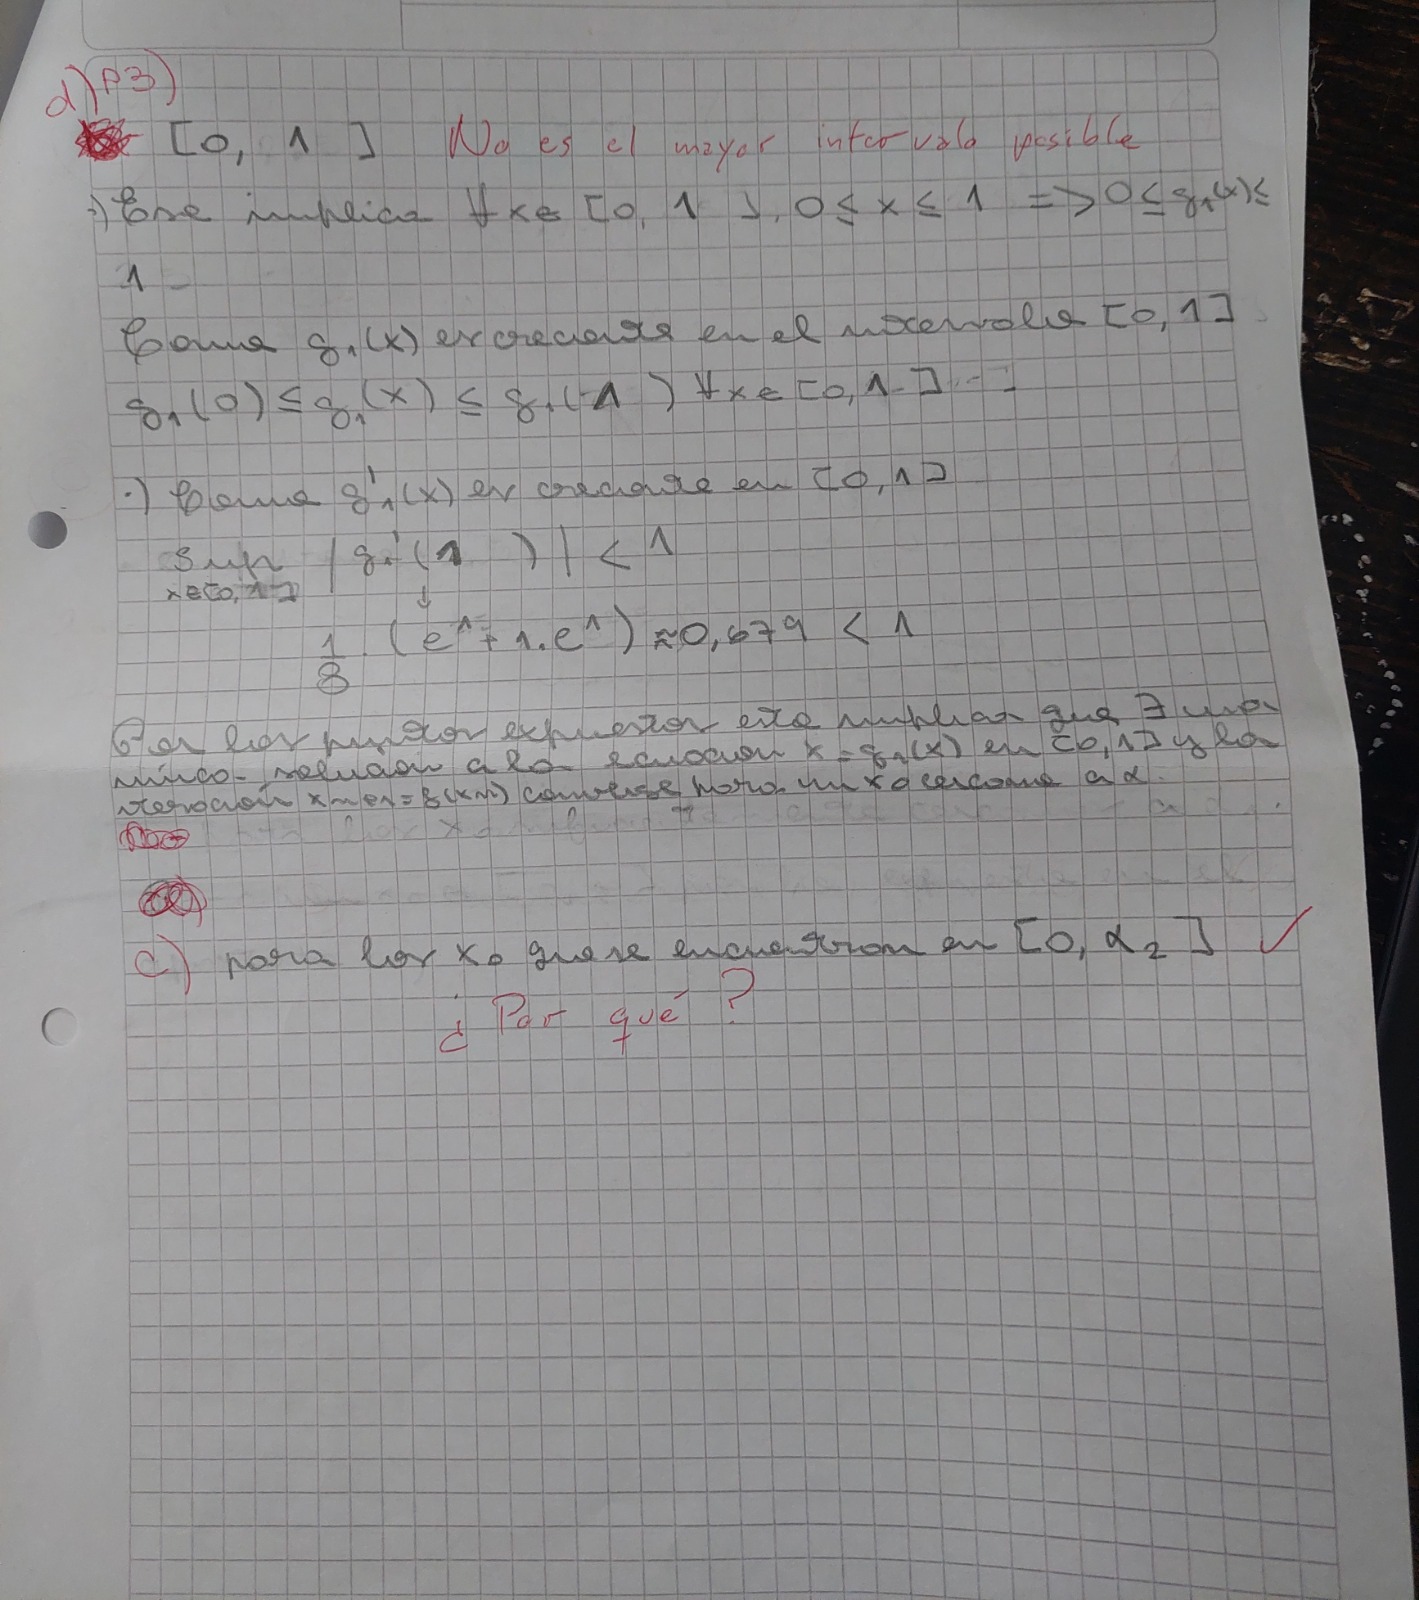 d) P3)
[0, 1 ] No es el mayor intervalo posible
·) Ese implica ∀ x ∈ [0, 1 ], 0 ≤ x ≤ 1 => 0 ≤ g₁(x) ≤
1
Como g₁(x) es creciente en el intervalo [0, 1]
g₁(0) ≤ g₁(x) ≤ g₁(1 ) ∀ x ∈ [0, 1 ]
·) Como g₁'(x) es creciente en [0, 1]
Sup | g₁'(1 ) | < 1
x∈[0, 1]
↓
1/8 . (e¹ + 1.e¹) ≈ 0,679 < 1
Por los puntos expuestos esto implica que ∃ una
única solución a la ecuación x = g₁(x) en [0, 1] y la
iteración x_{n+1} = g(x_n) converge para un x₀ cercano a α.
c) para los x₀ que se encuentran en [0, α₂ ] ✓
¿ Por qué ?